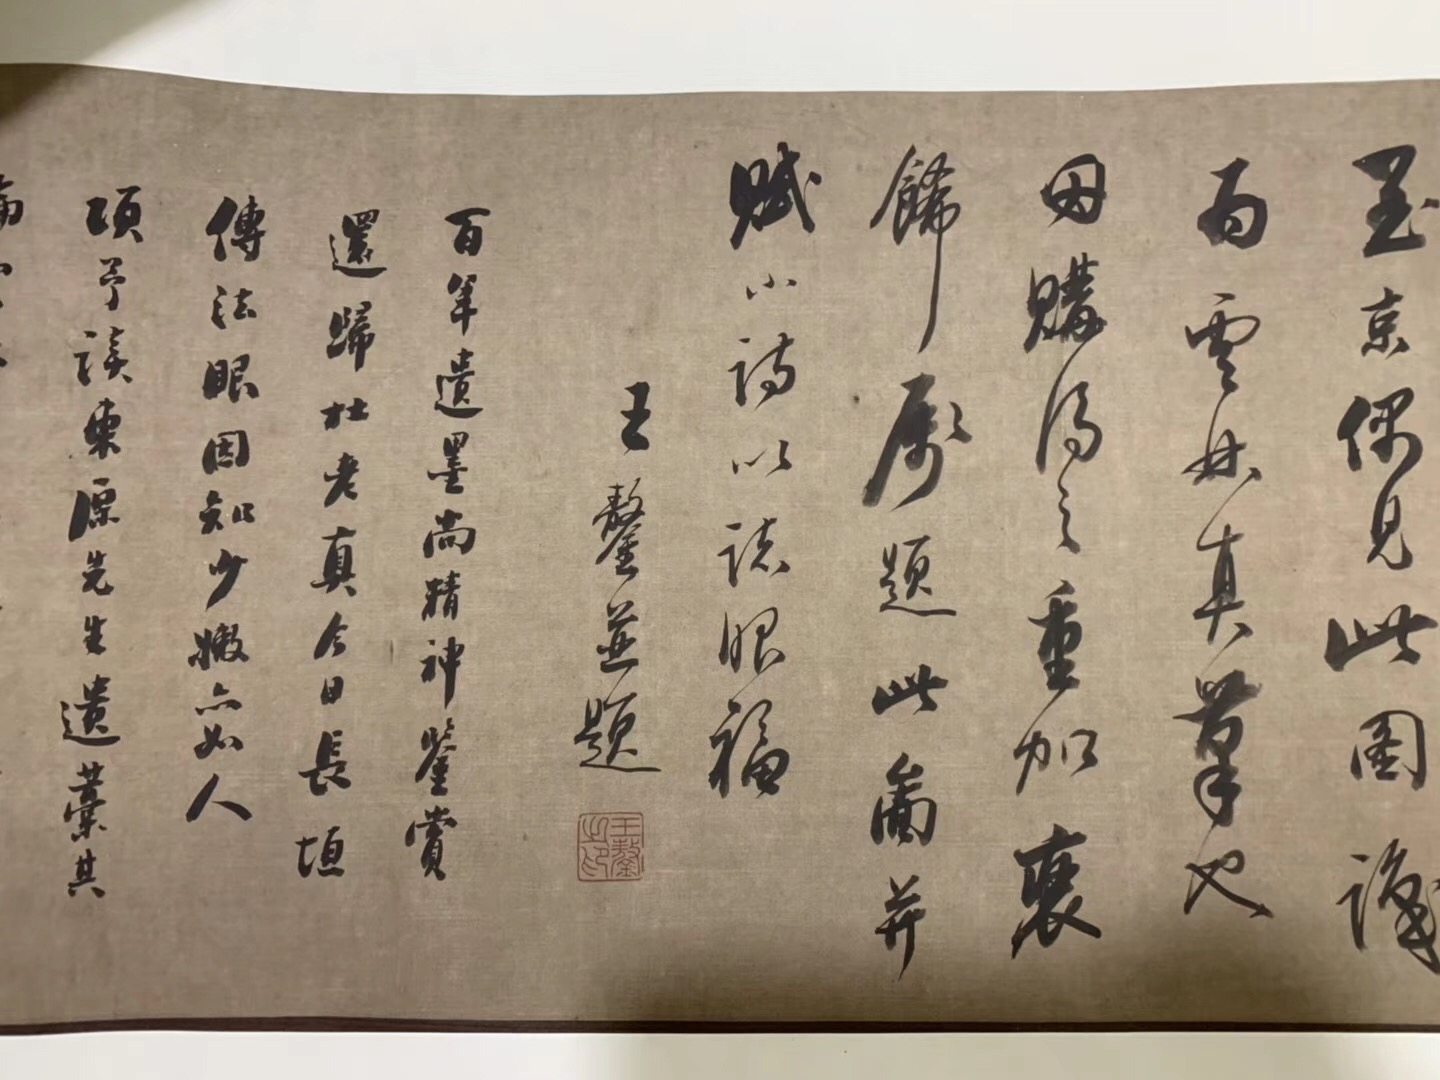 至京偶見此圖識
為雲林真筆也
因購得之重加裹
飾屬題此圖并
賦小詩以誌眼福
王鏊並題
王鏊之印
百年遺墨尚精神鑒賞
還歸杜老真今日長垣
傳法眼因知少嫩亦如人
頃予讀東原先生遺藁其